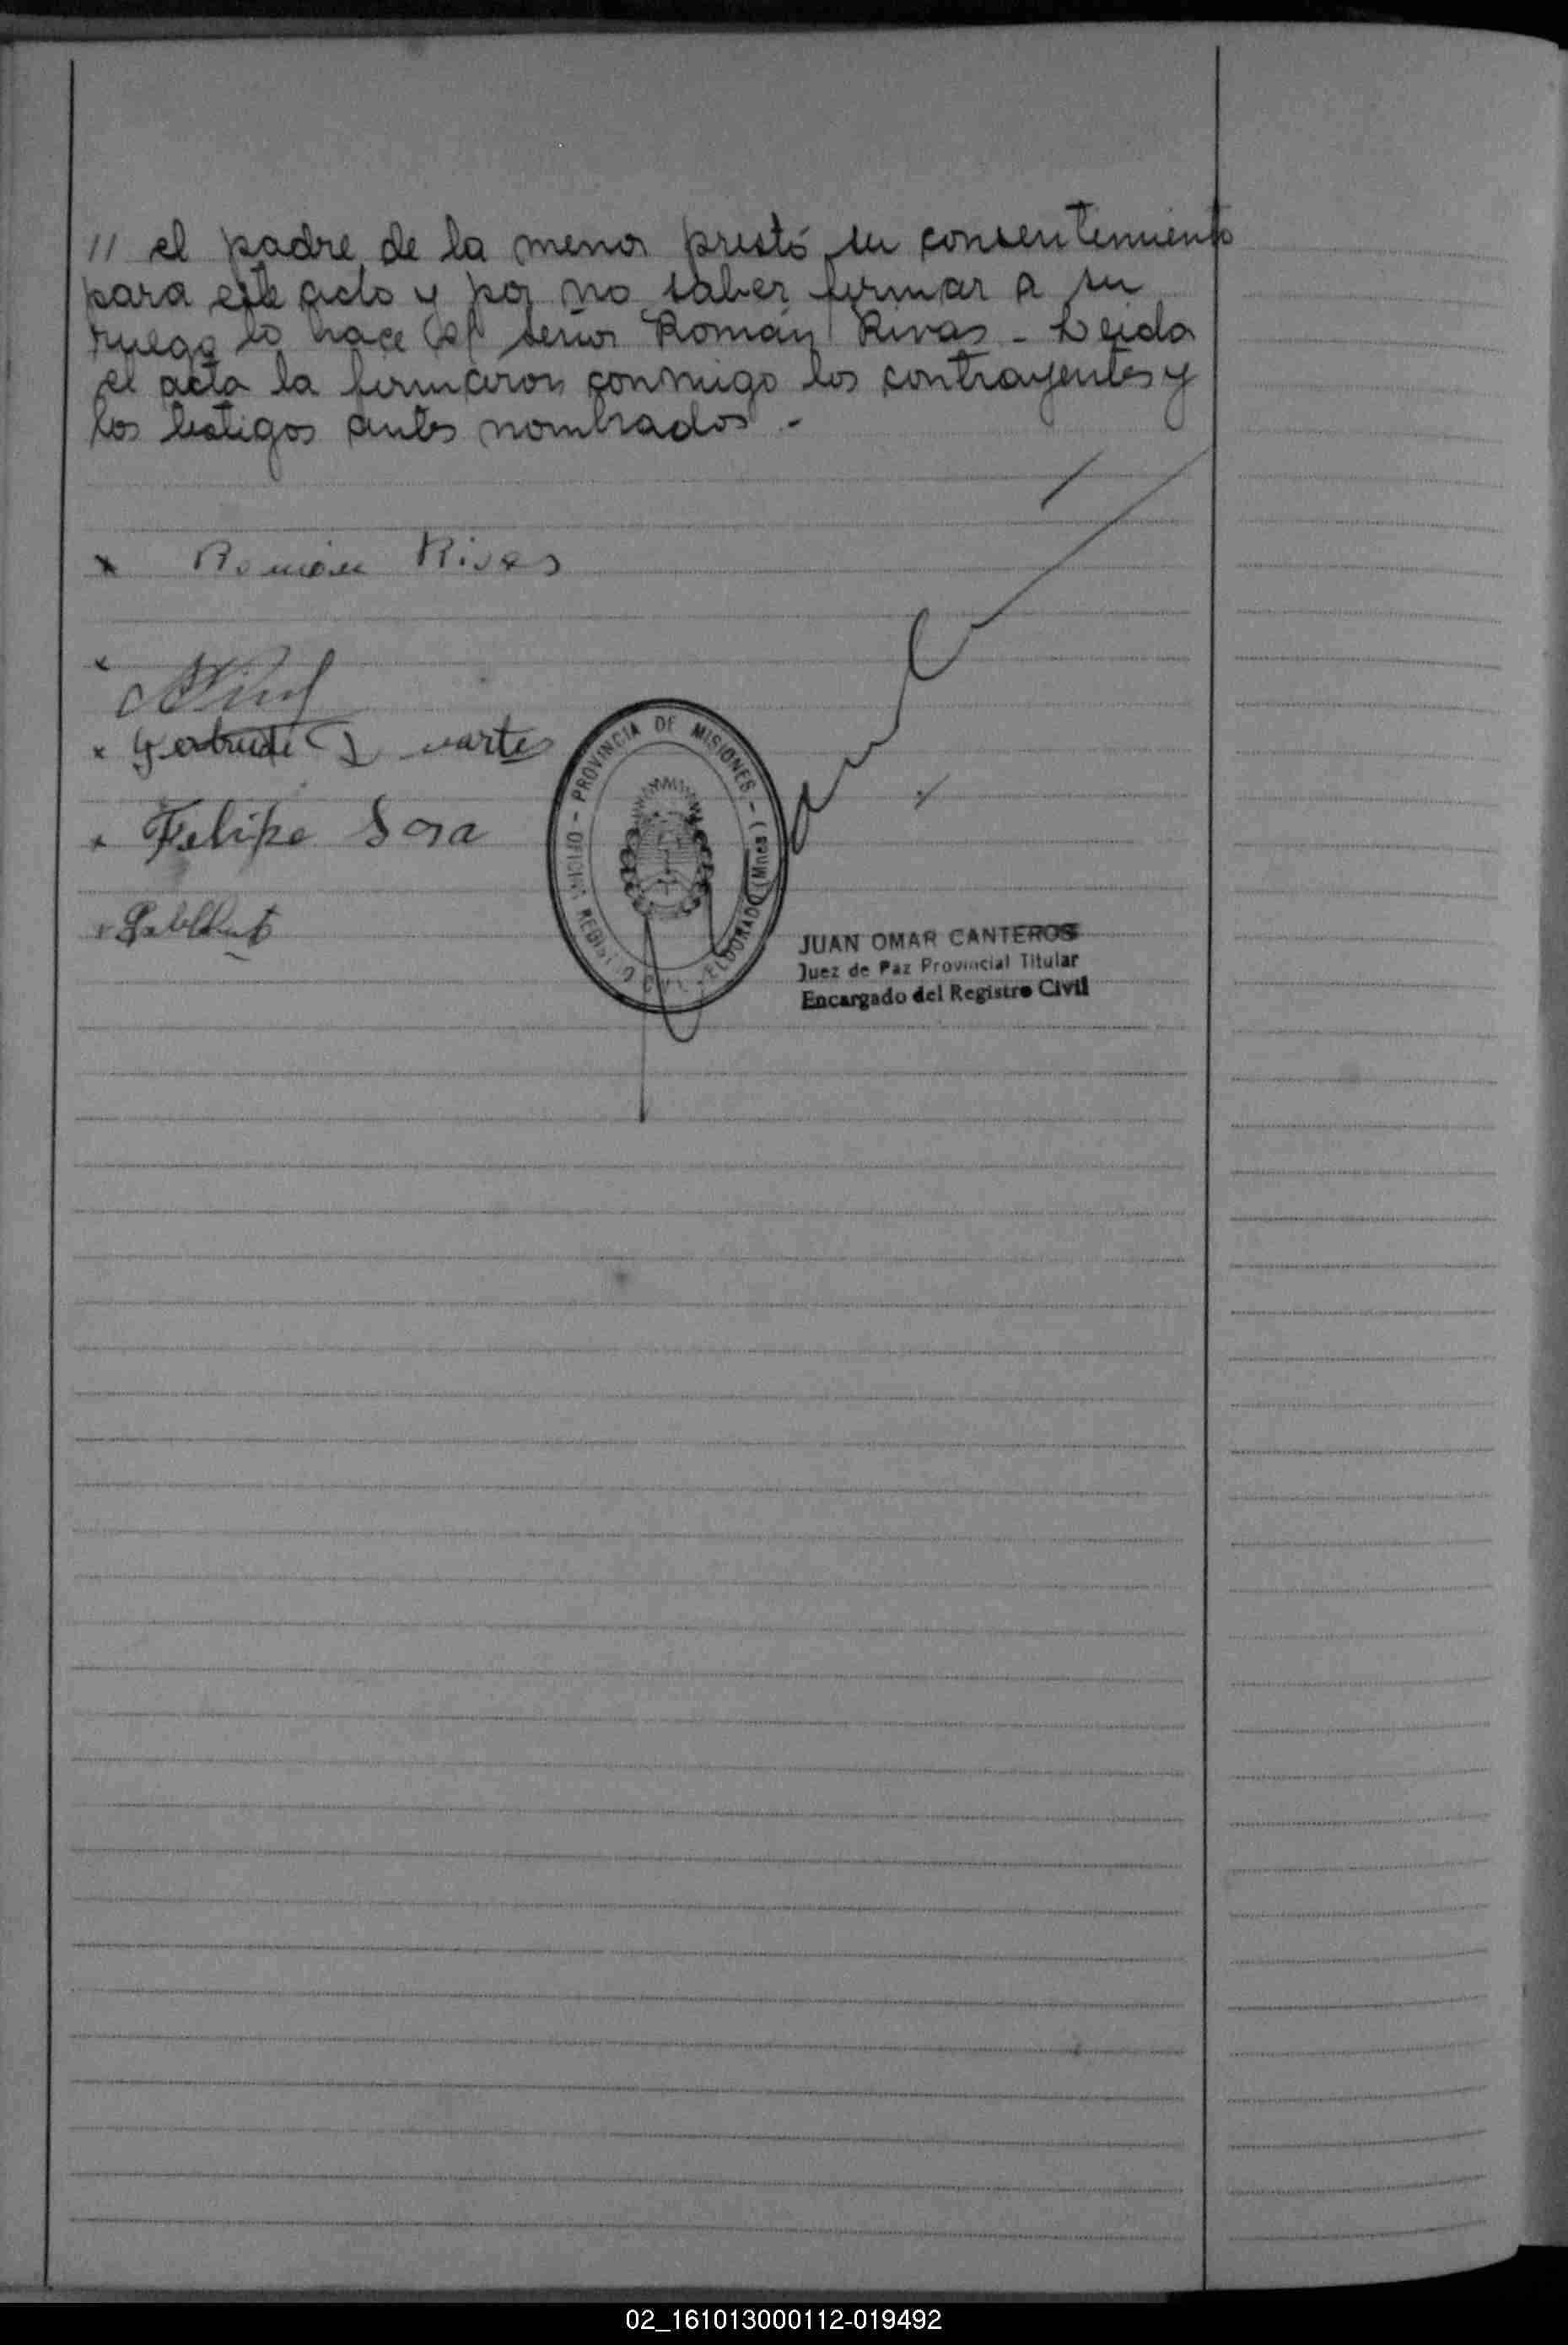 // el padre de la menor prestó su consentimiento
para este acto y por no saber firmar a su
ruego lo hace el señor Román Rivas - Leida
el acta la firmaron conmigo los contrayentes y
los testigos antes nombrados -
x Román Rivas
x
x Gertrudi Duarte
x Felipe Sosa
PROVINCIA DE MISIONES - ELDORADO (Mnes)
JUAN OMAR CANTEROS
Juez de Paz Provincial Titular
Encargado del Registro Civil
02_161013000112-019492